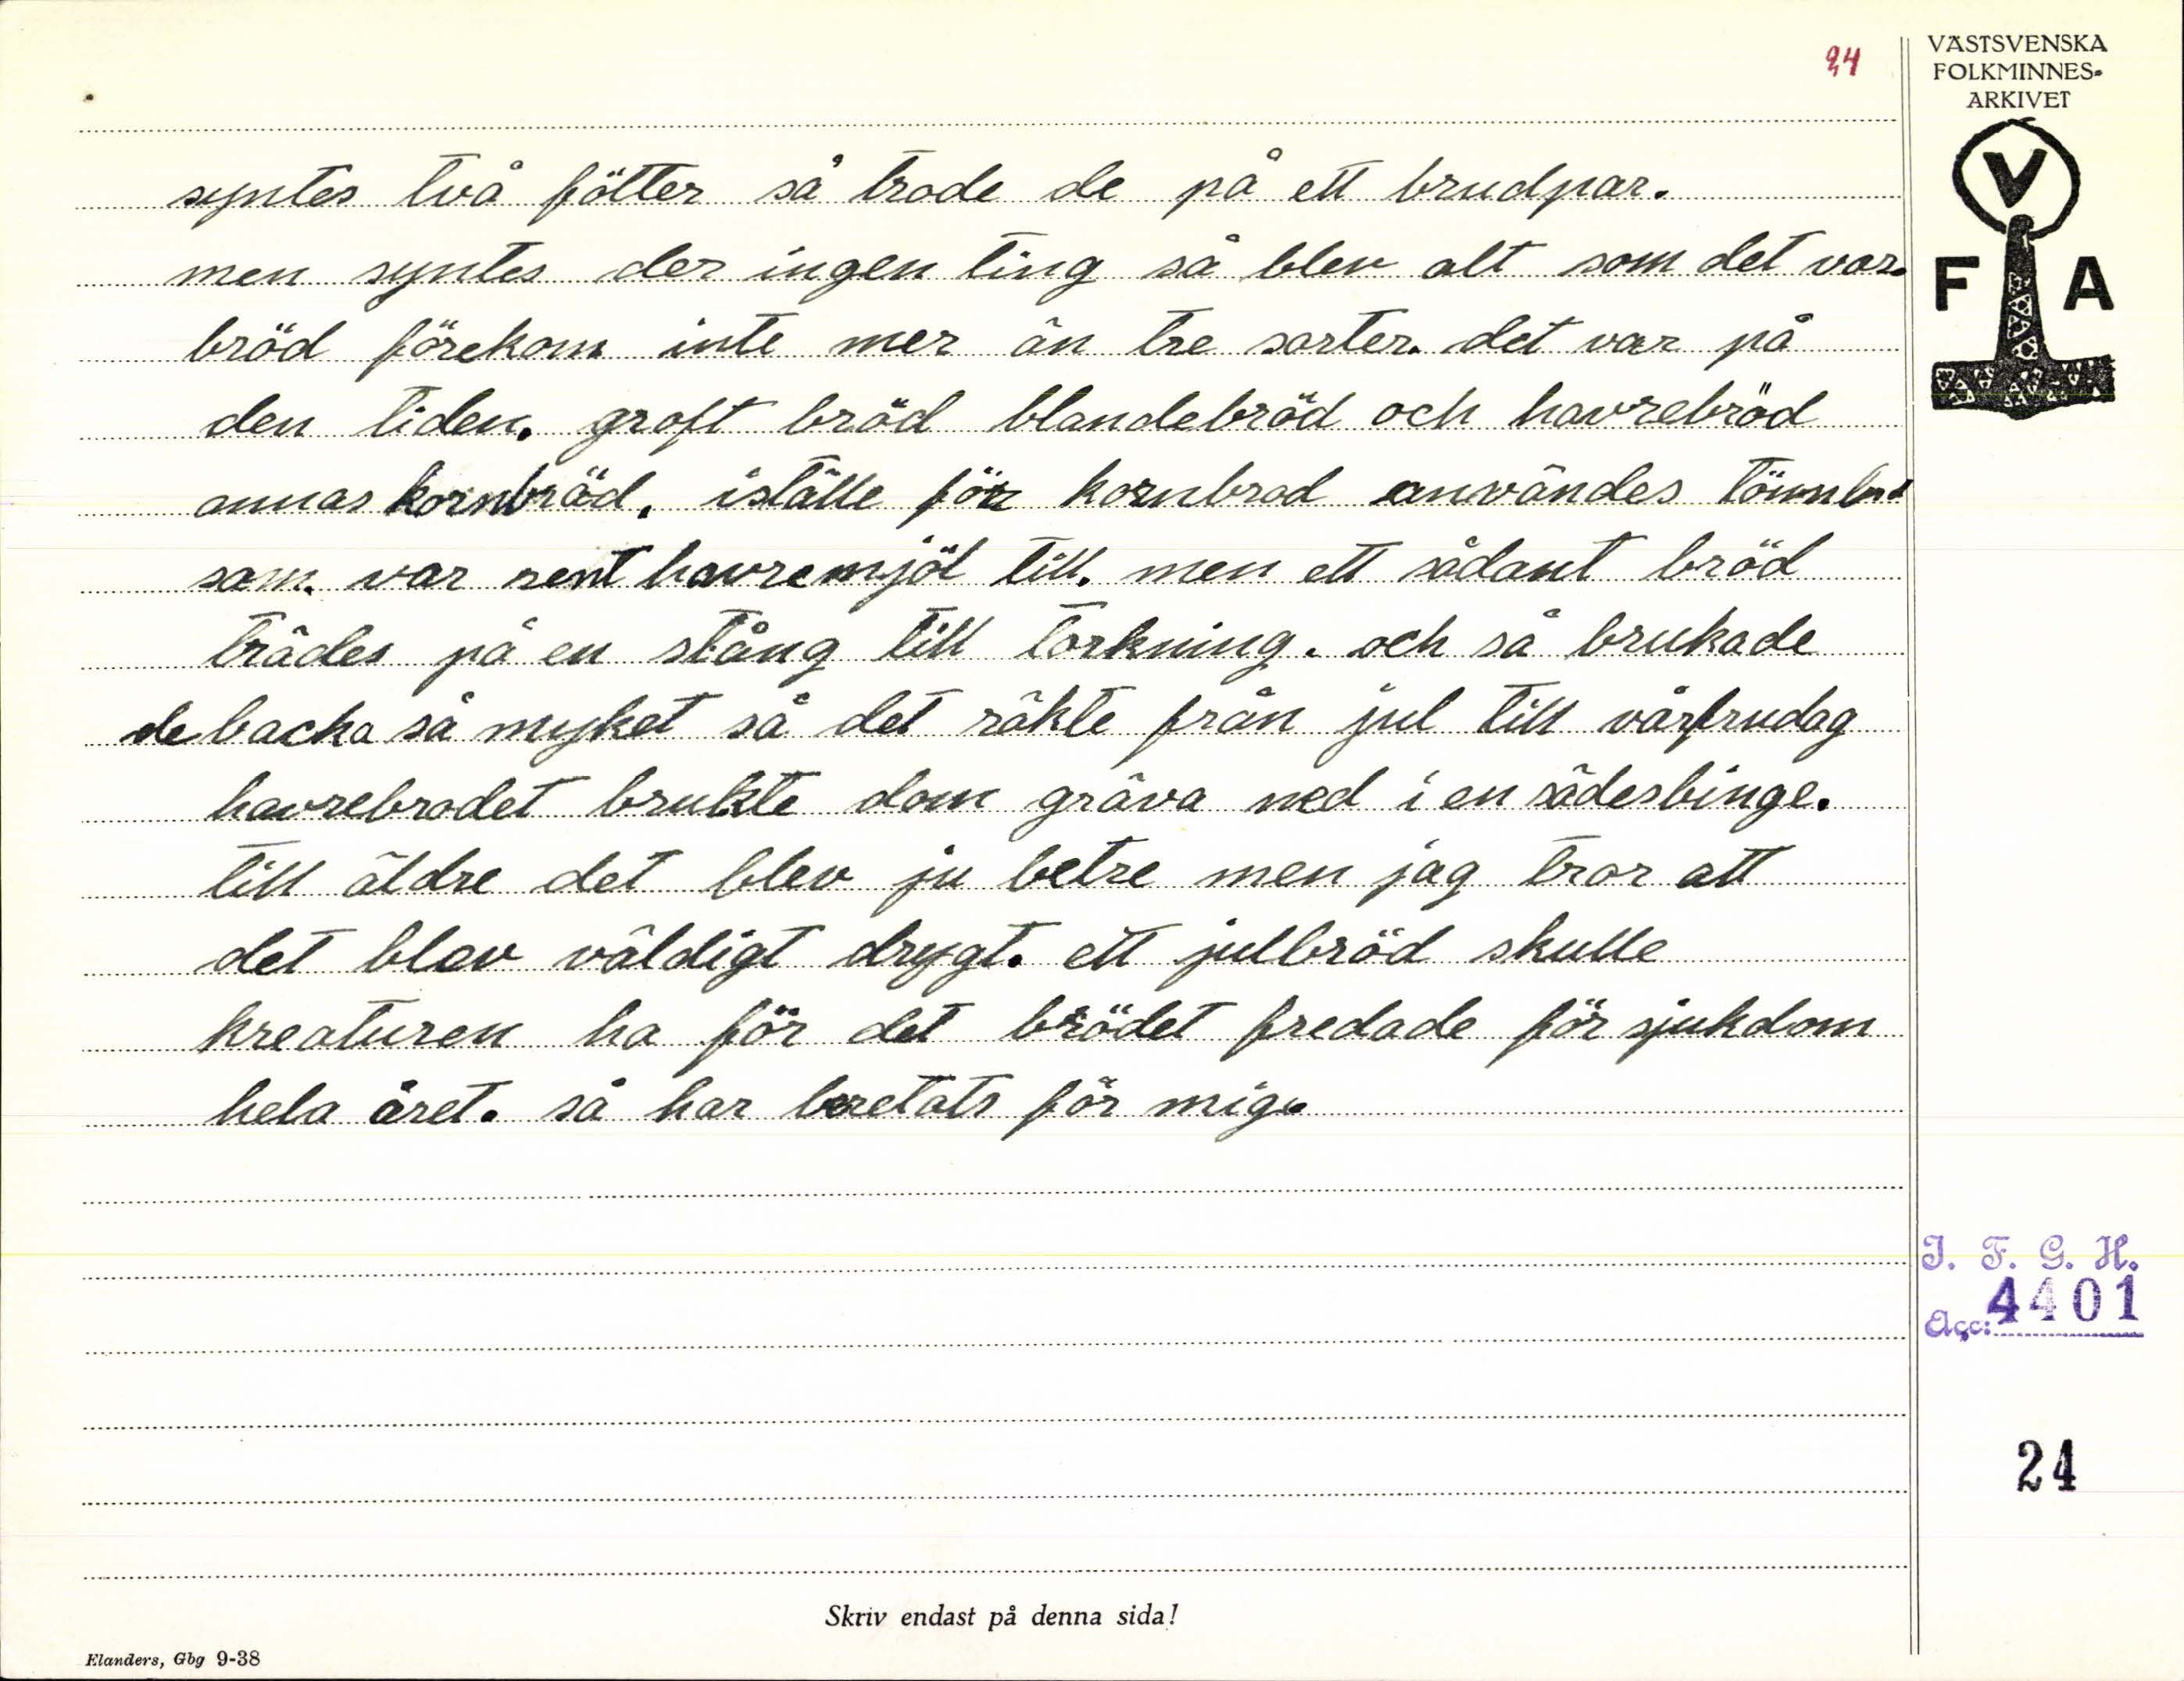 24
VÄSTSVENSKA
FOLKMINNES-
ARKIVET
V
F A
syntes två fötter så trode de på ett brudpar.
men syntes der ingen ting så blev alt som det var.
bröd förekom inte mer än tre sorter. det var på
den tiden. groft bröd blandebröd och havrebröd
annas kornbröd. iställe för kornbrod användes
som. var rent havremjöl till. men ett sådant bröd
trädes på en stång till torkning. och så brukade
de backa så myket så det räkte från jul till vårfrudag
havrebrodet brukte dom gräva ned i en sädesbinge.
till äldre det blev ju betre men jag tror att
det blev väldigt drygt. ett julbröd skulle
kreaturen ha för det brödet fredade för sjukdom
hela året. så har beretats för mig.
I. F. G. H.
Acc: 4401
24
Skriv endast på denna sida!
Elanders, Gbg 9-38